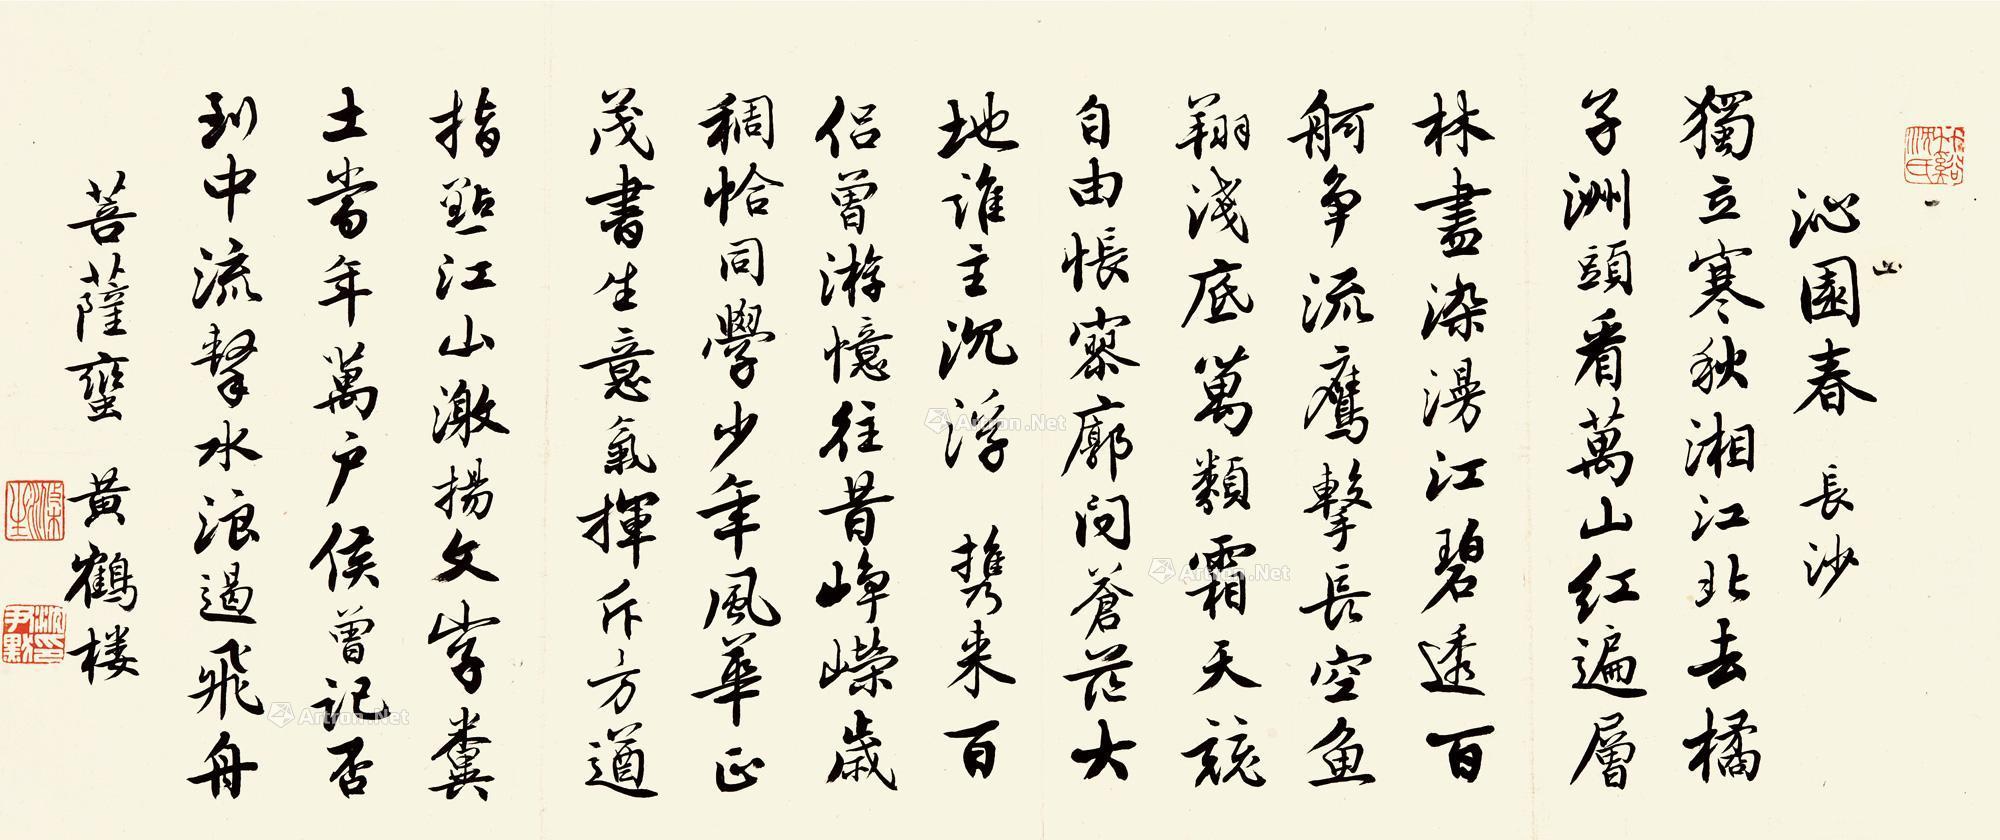 沁園春 長沙
獨立寒秋湘江北去橘
子洲頭看萬山紅遍層
林盡染漫江碧透百
舸爭流鷹擊長空魚
翔淺底萬類霜天競
自由悵寥廓問蒼茫大
地誰主沉浮 携来百
侣曾游憶往昔崢嶸歲
稠恰同學少年風華正
茂書生意氣揮斥方遒
指點江山激揚文字糞
土當年萬户侯曾記否
到中流擊水浪遏飛舟
菩薩蠻 黄鶴楼
沈尹默
Artron.Net
Artron.Net
Artron.Net